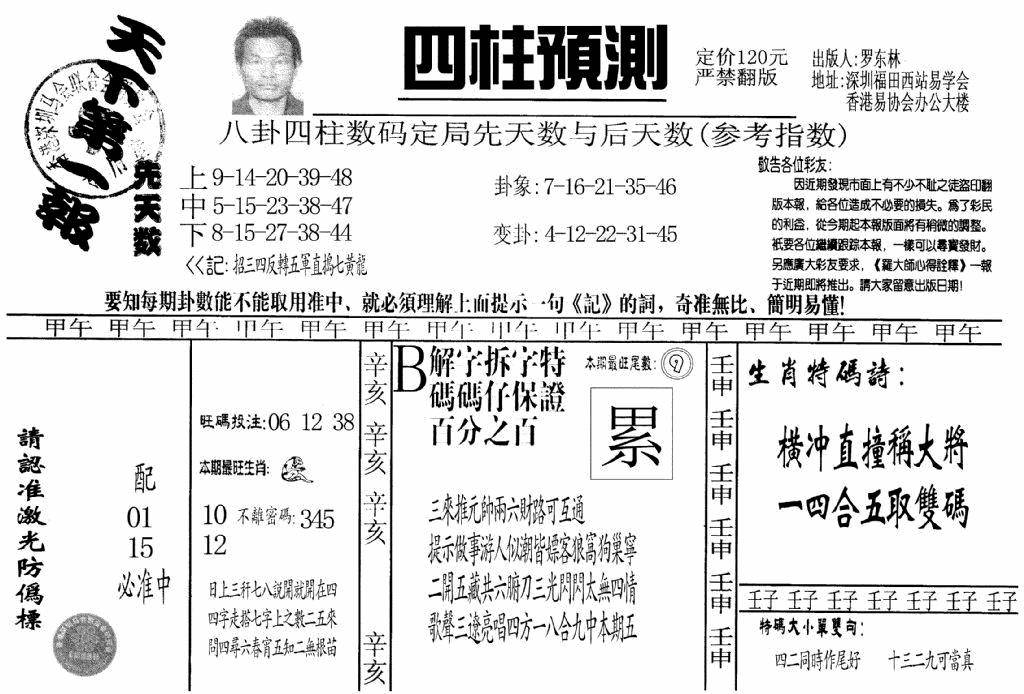 天下第一報
四柱預測
定价120元
严禁翻版
出版人:罗东林
地址:深圳福田西站易学会
香港易协会办公大楼
八卦四柱数码定局先天数与后天数(参考指数)
先天数
上 9-14-20-39-48
中 5-15-23-38-47
下 8-15-27-38-44
<<記:招三四反轉五軍直搗七黃龍
卦象:7-16-21-35-46
变卦:4-12-22-31-45
敬告各位彩友:
因近期發現市面上有不少不耻之徒盜印翻
版本報,給各位造成不必要的損失。爲了彩民
的利益,從今期起本報版面將有稍微的調整。
衹要各位繼續跟踪本報,一樣可以尋寶發財。
另應廣大彩友要求,《羅大師心得詮釋》一報
于近期即將推出。請大家留意出版日期!
要知每期卦數能不能取用准中、就必須理解上面提示一句《記》的詞,奇准無比、簡明易懂!
甲午 甲午 甲午 甲午 甲午 甲午 甲午 甲午 甲午 甲午 甲午 甲午 甲午 甲午 甲午
請認准激光防僞標
配
01
15
必准中
旺碼投注:06 12 38
本期最旺生肖:
10 不離密碼:345
12
日上三秆七八説開就開在四
四字走搭七字上之數二五來
問四尋六春宵五知二無根苗
辛亥 辛亥 辛亥 辛亥
B解字拆字特
碼碼仔保證
百分之百
本期最旺尾數:9
累
三來推元帥兩六財路可互通
提示做事游人似潮皆嫖客狼窩狗巢寧
二開五藏共六腑刀三光閃閃太無四情
歌聲三遼亮唱四方一八合九中本期五
壬申 壬申 壬申 壬申 壬申 壬申
生肖特碼詩:
橫冲直撞稱大將
一四合五取雙碼
壬子 壬子 壬子 壬子 壬子 壬子 壬子
特碼大小單雙句:
四二同時作尾好 十三二九可當真